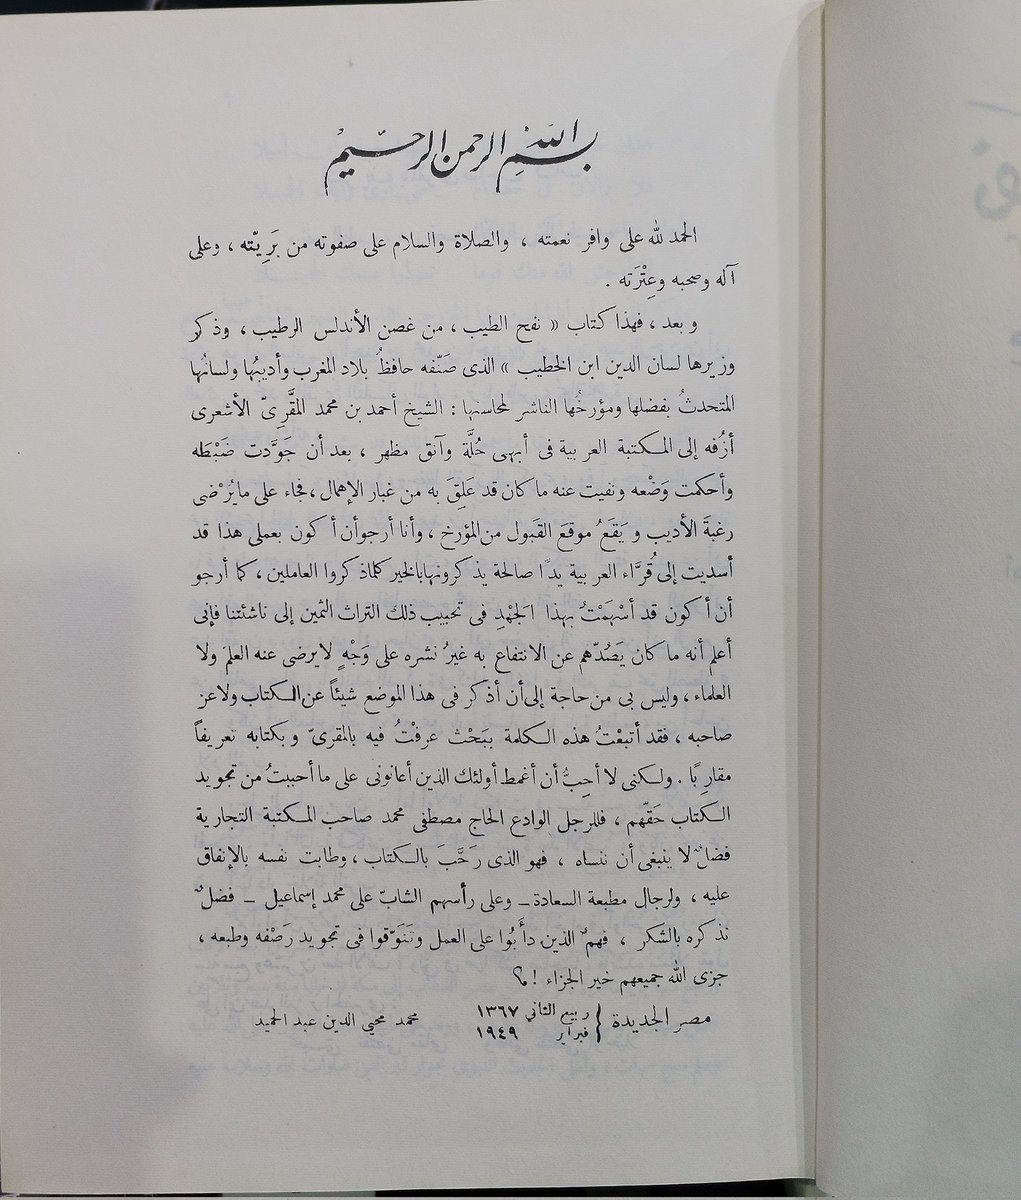 بسم الله الرحمن الرحيم
الحمد لله على وافر نعمته ، والصلاة والسلام على صفوته من بَرِيّته ، وعلى
آله وصحبه وعِتْرَته .
وبعد ، فهذا كتاب « نفح الطيب ، من غصن الأندلس الرطيب ، وذكر
وزيرها لسان الدين ابن الخطيب » الذى صَنّفه حافظُ بلاد المغرب وأديبُها ولسانُها
المتحدثُ بفضلها ومؤرخُها الناشر لمحاسنها : الشيخ أحمد بن محمد المقَّرِىّ الأشعرى
أزُفه إلى المكتبة العربية فى أبهى حُلَّة وآنق مظهر ، بعد أن جَوَّدت ضَبْطَه
وأحكمت وَضْعه ونفيت عنه ما كان قد عَلِقَ به من غبار الإهمال ، فجاء على ما يُرْضى
رغبةَ الأديب ويَقَعُ موقعَ القَبول من المؤرخ ، وأنا أرجو أن أكون بعملى هذا قد
أسديت إلى قُرَّاء العربية يدًا صالحة يذكرونها بالخير كلما ذكروا العاملين ، كما أرجو
أن أكون قد أسْهَمْتُ بهذا الجَهْدِ فى تحبيب ذلك التراث الثمين إلى ناشئتنا فإنى
أعلم أنه ما كان يَصُدّهم عن الانتفاع به غيرُ نشره على وَجْهٍ لا يرضى عنه العلم ولا
العلماء ، وليس بى من حاجة إلى أن أذكر فى هذا الموضع شيئاً عن الكتاب ولا عن
صاحبه ، فقد أتبعْتُ هذه الكلمة ببَحْث عرفْتُ فيه بالمقرىّ وبكتابه تعريفاً
مقاربًا . ولكنى لا أحِبُّ أن أغمط أولئك الذين أعانونى على ما أحببتُ من تجويد
الكتاب حَقَّهم ، فللرجل الوادع الحاج مصطفى محمد صاحب المكتبة التجارية
فضلٌ لا ينبغى أن ننساه ، فهو الذى رَحَّبَ بالكتاب ، وطابت نفسه بالإنفاق
عليه ، ولرجال مطبعة السعادة – وعلى رأسهم الشابّ على محمد إسماعيل – فضلٌ
نذكره بالشكر ، فهمُ الذين دأَبُوا على العمل وتَنَوّقوا فى تجويد رَصْفه وطبعه ،
جزى الله جميعهم خير الجزاء !
مصر الجديدة { ربيع الثانى ١٣٦٧ محمد محيي الدين عبد الحميد
فبراير ١٩٤٩